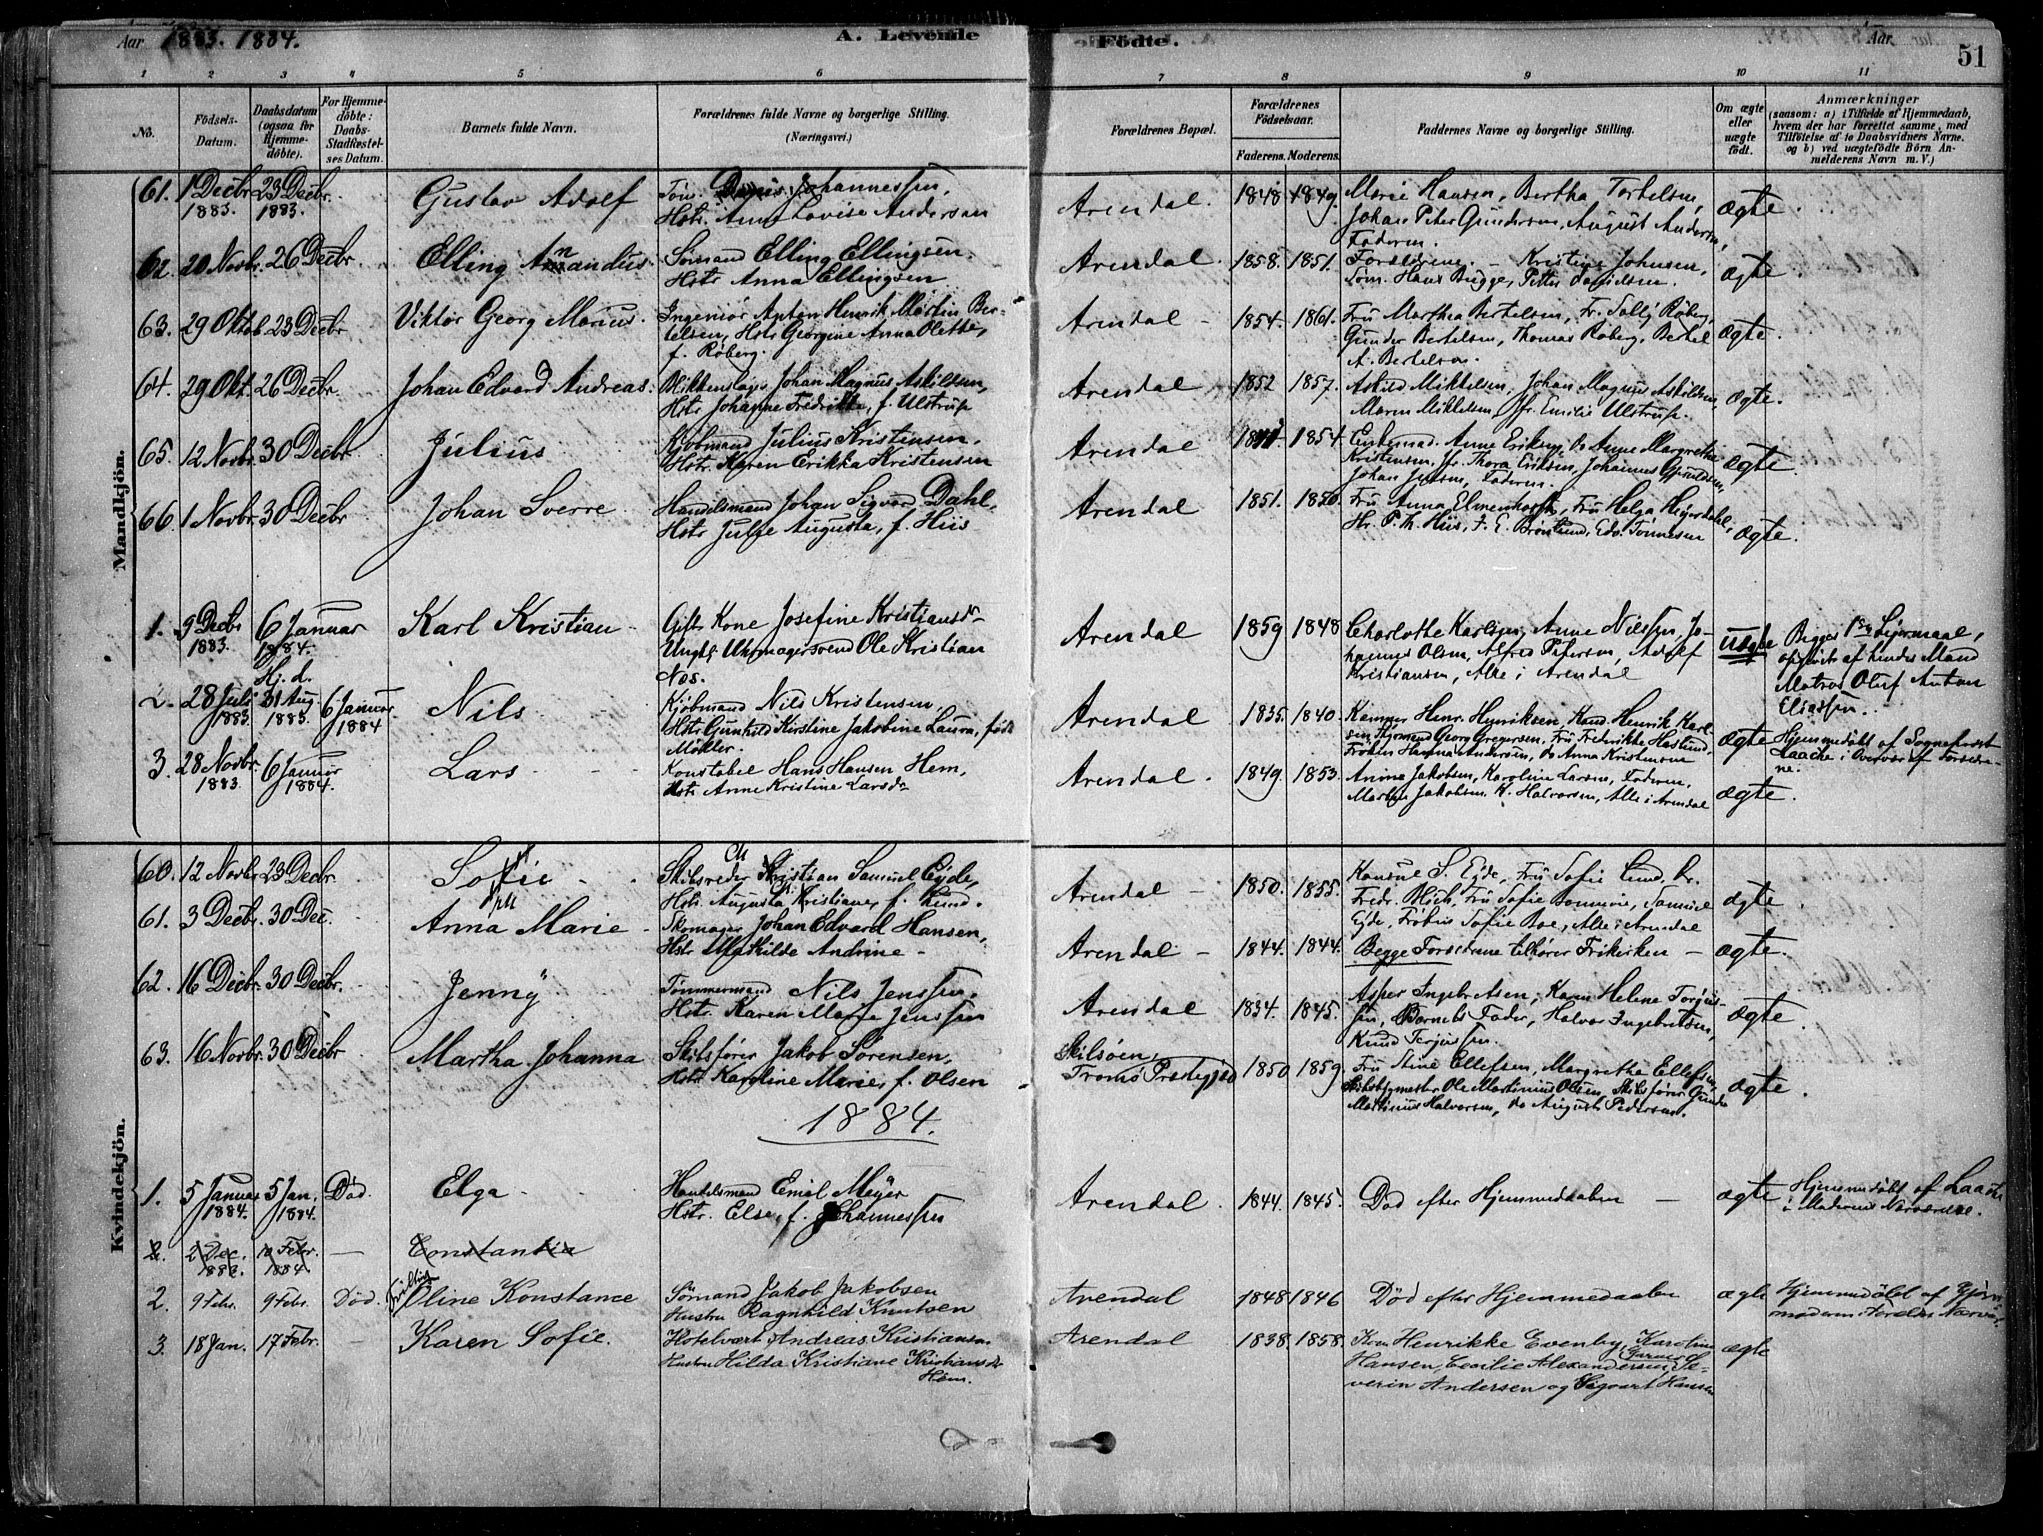 Aar 1883. 1884.
A. Levende Fødte.
Aar
51
1 2 3 4 5 6 7 8 9 10 11
No.
Fødsels-Datum.
Daabsdatum (ogsaa for Hjemme-døbte).
For Hjemme-døbte: Daabs-Stadfæstel-ses Datum.
Barnets fulde Navn.
Forældrenes fulde Navne og borgerlige Stilling. (Næringsvei.)
Forældrenes Bopæl.
Forældrenes Fødselsaar.
Faderens. Moderens.
Faddernes Navne og borgerlige Stilling.
Om ægte eller uægte født.
Anmærkninger (saasom: a) i Tilfælde af Hjemmedaab, hvem der har forrettet samme, med Tilføielse af to Daabsvidners Navne. og b) ved uægtefødte Børn An-melderens Navn m. V.)
Mandkjön.
61. 1 Decbr 1883. 23 Decbr. 1883. Gustav Adolf
Johannessen,
Hstr. Anna Lovise Andersen
Arendal. 1848 1849.
Marie Hansen, Bertha Terkelsen,
Johan Peter Gundersen, August Andersen,
Faderen.
ægte.
62. 20 Novbr. 26 Decbr. Elling Amandus.
Sømand Elling Ellingsen.
Hstr Anna Ellingsen
Arendal. 1858. 1851.
Forældrene. - Kristine Johnsen,
Søm. Hans Bugge, Petter Danielsen.
ægte.
63. 29 Oktob. 23 Decbr Viktor Georg Marius.
Ingeniør Anton Henrik Martin Ber-
telsen, Hstr Georgine Anna Olette,
f. Røberg.
Arendal - 1854. 1861.
Fru Marthea Bertelsen, Fr. Sally Røberg,
Gunder Bertelsen, Thomas Røberg, Bertel
A. Bertelsen.
ægte.
64. 29 Okt. 26 Decbr. Johan Edvard Andreas.
Blikkenslager Johan Magnus Askildsen,
Hstr Johanne Fredrikke, f. Ulstrup
Arendal 1852 1857.
Askild Mikkelsen, Johan Magnus Askildsen,
Maren Mikkelsen, Jfr. Emilie Ulstrup.
ægte.
65. 12 Novbr. 30 Decbr. Julius
Kjøbmand Julius Kristensen.
Hstr. Karen Erikka Kristensen
Arendal 1854.
Enkemad. Anne Eriksen, Do Anne Margrethe
Kristensen, Jfr. Thora Eriksen, Johannes
Johan Julsen, Faderen.
ægte.
66. 1 Novbr. 30 Decbr Johan Sverre.
Handelsmand Johan Sigvard Dahl,
Hstr Julie Augusta, f. Hiis
Arendal 1851. 1850.
Fru Anna Elmenhorst, Fru Helga Heyerdahl,
Hr. P. Th. Hiis, F. E. Brønlund, Edv. Tønnesen
ægte.
1. 9 Decbr 1883. 6 Januar 1884. Karl Kristian
Gift Kone Josefine Kristiansdr
Ungkl. Uhrmagersvend Ole Kristian
Næs.
Arendal 1859 1848
Charlotte Karlsen, Anne Nilssen, Jo-
hannes Olsen, Alfred Petersen, Adolf
Kristiansen, Alle i Arendal
uægte
Begges 1ste Leiermaal,
opgivet af hendes Mand
Matros Oluf Anton
Eliassen.
2. 28 Juli 1883. Hj. d. 31 Aug. 1883. 6 Januar. 1884 Nils
Kjøbmand Nils Kristensen.
Hstr Gunhild Kirstine Jakobine Laura, født
Møkler.
Arendal 1835. 1840.
Kemner Henr. Henriksen, Kand. Henrik Karl-
sen, Styrmand Georg Gregersen, Fru Frederikke Haslund,
Frøken Hanna Andersen, do Anna Kristensen
ægte
Hjemmedøbt af Sognepræst
Laache i Overvær af Forældre-
ne.
3. 28 Novbr. 1883. 6 Januar 1884. Lars
Konstabel Hans Hansen Hem,
Hstr Anne Kristine Larsdr
Arendal. 1849. 1853.
Anine Jakobsen, Karoline Larsen, Faderen,
Martin Jakobsen, K. Halvorsen, Alle i Arendal
ægte.
Kvindekjön.
60. 12 Novbr. 23 Decbr. Sofie
Skibsreder Kristian Samuel Eyde,
Hstr. Augusta Kristiane, f. Lund.
Arendal - 1850. 1855.
Konsul S. Eyde, Fru Sofie Lund, Hr.
Fredr. Bloch, Fru Sofie Bonnevie, Samuel
Eyde, Frøken Sofie Boe, Alle i Arendal
ægte.
61. 3 Decbr. 30 Dec. Anna Marie
Skomager Johan Edvard Hansen,
Hstr Mathilde Andrine -
Arendal - 1844. 1844.
Begge Forældrene tilhører Frikirken -
ægte.
62. 16 Decbr. 30 Decbr. Jenny
Tømmermand Nils Jenssen,
Hstr. Karen Marie Jenssen
Arendal 1834. 1845.
Asper Ingebretsen, Karen Helene Torjus-
sen, Barnets Fader, Halvor Ingebretsen,
Knud Terjussen.
ægte.
63. 16 Novbr. 30 Decbr Martha Johanna
Skibsfører Jakob Sørensen,
Hstr Karoline Marie, f. Olsen
Skilsøen,
Tromø Præstegjeld 1850 1859
Fru Stine Ellefsen, Margrethe Ellefsen,
Skibsbygmester Ole Martinius Olsen, Skibsfører Gunder
Martinius Halvorsen, do August Pedersen.
ægte.
1884.
1. 5 Januar 1884. 5 Jan. 1884. Død. Elga
Handelsmand Emil Meyer
Hstr. Else, f. Johannessen
Arendal. 1844. 1845.
Død efter Hjemmedaaben -
ægte
Hjemmedøbt af Laache
i Moderens Nærværelse.
2. 2 Dec. 1883. 10 Febr. 1884 — Constantia
2. 9 Febr. 9 Febr. Død. Tvilling Oline Konstance
Sømand Jakob Jakobsen
Hustru Ragnhild Knutsen
Arendal 1848 1846
Død efter Hjemmedaaben
ægte
Hjemmedøbt af Gjor-
moderen i Forældres Nærvær.
3. 18 Jan. 17 Febr. — Karen Sofie.
Hotelvært Andreas Kristiansen
Hustru Hilda Kristiane Kristiansdr
Hem.
Arendal 1838. 1858.
Kone Henrikke Evenby, Karoline
Hansen, Cecilie Alexandersen, Se-
verin Andersen og Sigvart Hansen
ægte